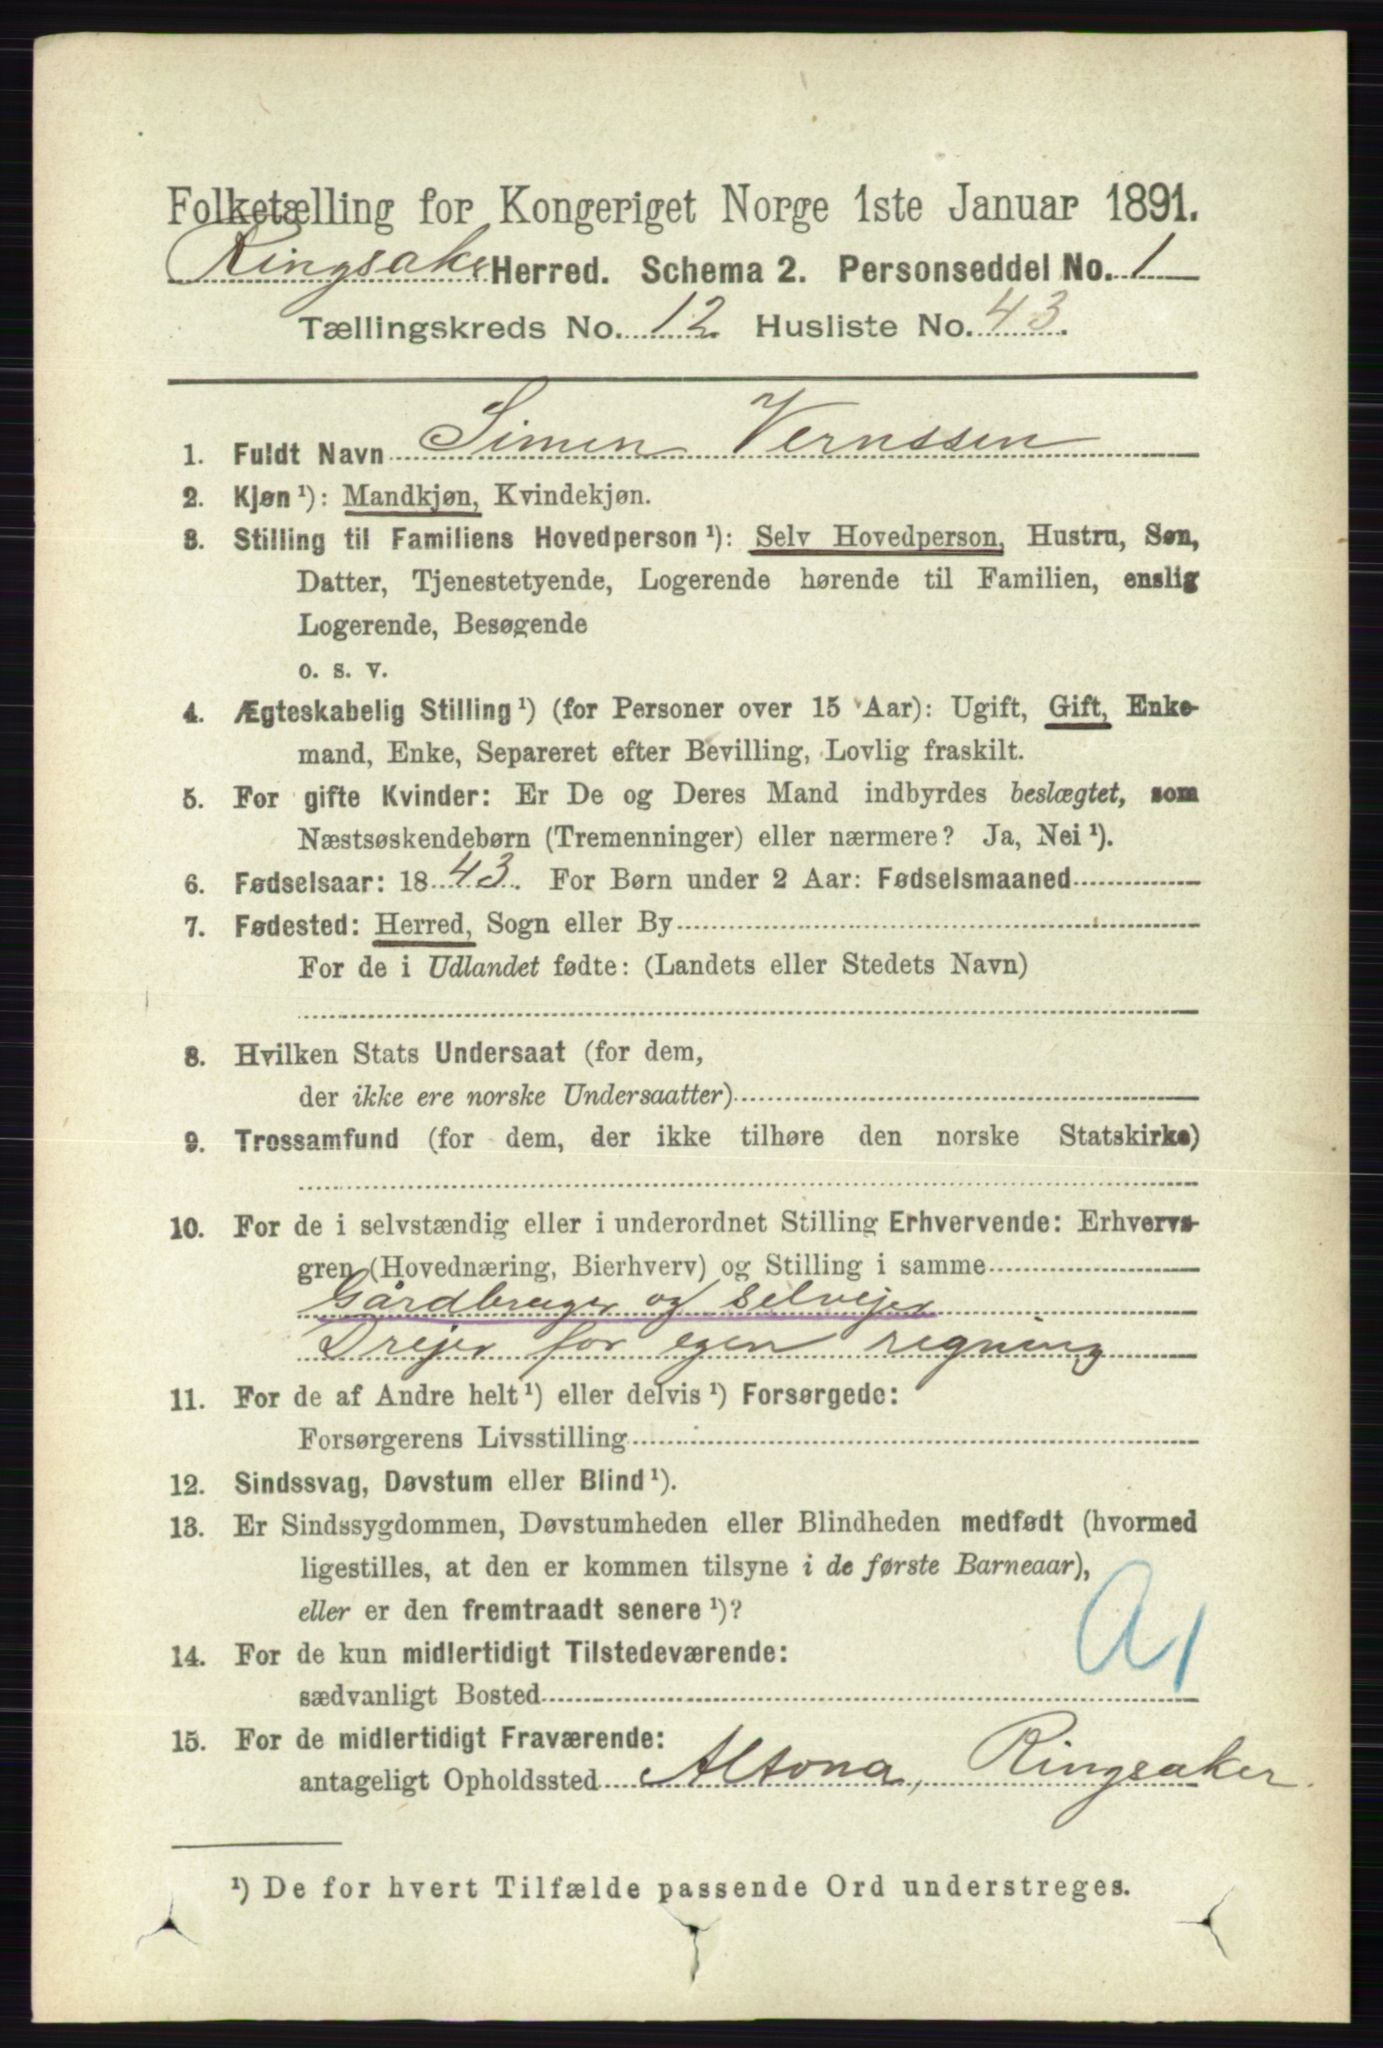 Folketælling for Kongeriget Norge 1ste Januar 1891.
Ringsaker Herred. Schema 2. Personseddel No. 1
Tællingskreds No. 12 Husliste No. 43.
1. Fuldt Navn Simen Vernssen
2. Kjøn ¹): Mandkjøn, Kvindekjøn.
3. Stilling til Familiens Hovedperson ¹): Selv Hovedperson, Hustru, Søn,
Datter, Tjenestetyende, Logerende hørende til Familien, enslig
Logerende, Besøgende
o. s. v.
4. Ægteskabelig Stilling ¹) (for Personer over 15 Aar): Ugift, Gift, Enke-
mand, Enke, Separeret efter Bevilling, Lovlig fraskilt.
5. For gifte Kvinder: Er De og Deres Mand indbyrdes beslægtet, som
Næstsøskendebørn (Tremenninger) eller nærmere? Ja, Nei ¹).
6. Fødselsaar: 1843. For Børn under 2 Aar: Fødselsmaaned
7. Fødested: Herred, Sogn eller By
For de i Udlandet fødte: (Landets eller Stedets Navn)
8. Hvilken Stats Undersaat (for dem,
der ikke ere norske Undersaatter)
9. Trossamfund (for dem, der ikke tilhøre den norske Statskirke)
10. For de i selvstændig eller i underordnet Stilling Erhvervende: Erhvervs-
gren (Hovednæring, Bierhverv) og Stilling i samme
Gårdbruger og selvejer
Drejer for egen regning
11. For de af Andre helt ¹) eller delvis ¹) Forsørgede:
Forsørgerens Livsstilling
12. Sindssvag, Døvstum eller Blind ¹).
13. Er Sindssygdommen, Døvstumheden eller Blindheden medfødt (hvormed
ligestilles, at den er kommen tilsyne i de første Barneaar),
eller er den fremtraadt senere ¹)?
A1
14. For de kun midlertidigt Tilstedeværende:
sædvanligt Bosted
15. For de midlertidigt Fraværende:
antageligt Opholdssted Altona, Ringsaker.
¹) De for hvert Tilfælde passende Ord understreges.